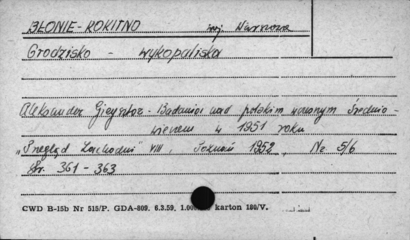 BŁONIE-ROKITNO woj. Warszawa
Grodzisko - wykopaliska
Aleksander Gieysztor - Badania nad polskim wczesnym średnio-
wieczem w 1951 roku
"Przegląd Zachodni" VIII, Poznań 1952, Nr 5/6
str. 361-363
CWD B-15b Nr 515/P. GDA-809. 6.3.59, 1.00 karton 180/V.